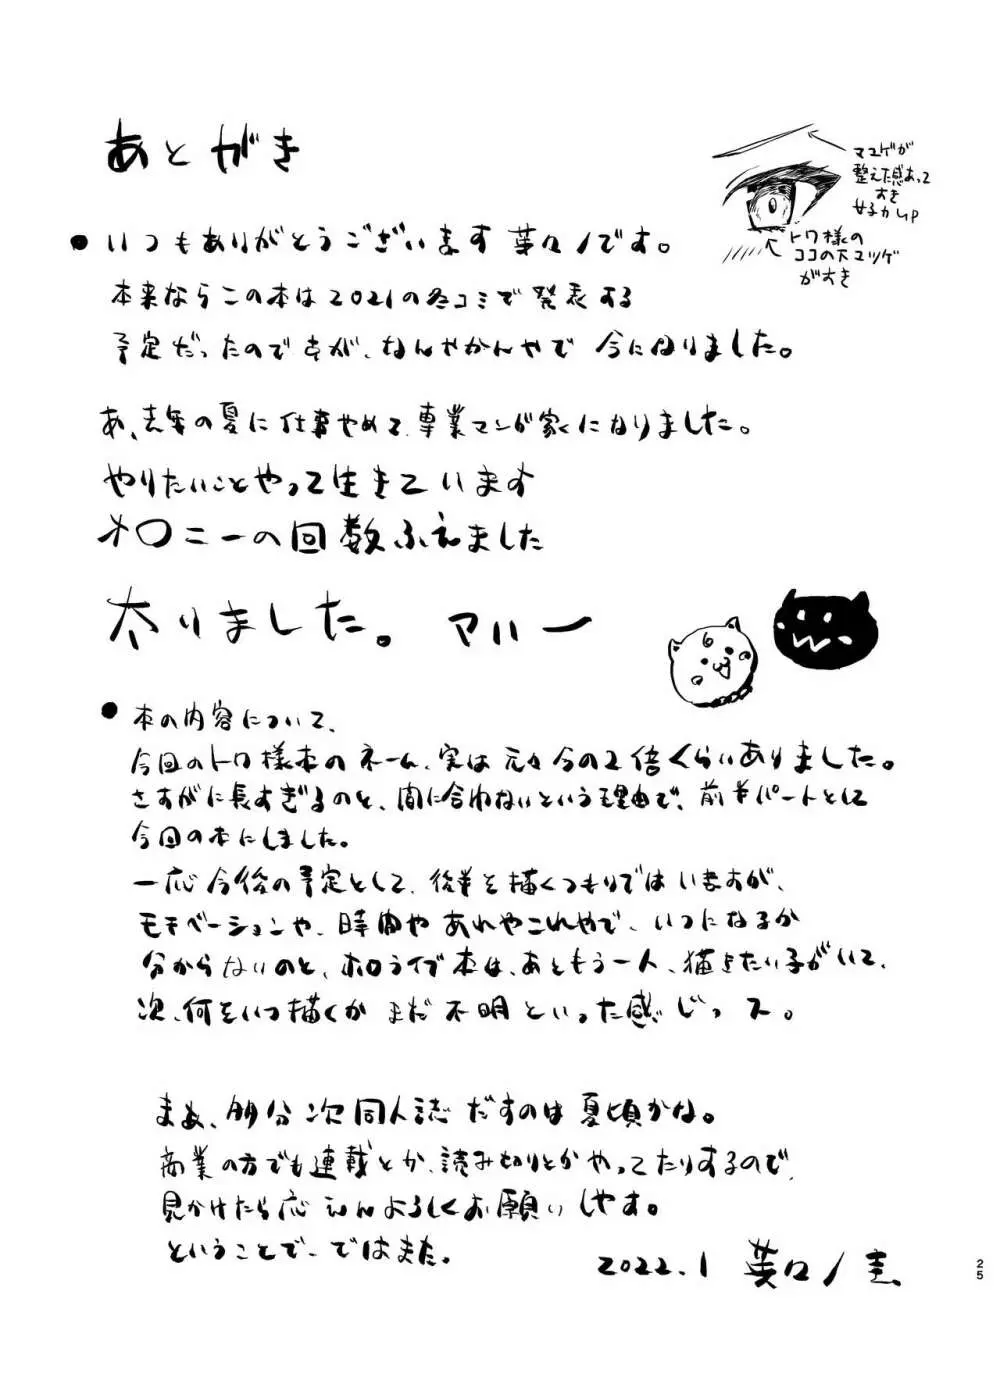 あとがき
マユゲが
整えた感あって
すき
女子力UP
トワ様の
ココの下マツゲ
がすき
● いつもありがとうございます 葉々ノです。
本来ならこの本は2021の冬コミで発表する
予定だったのですが、なんやかんやで 今になりました。
あ、去年の夏に仕事やめて、専業マンガ家になりました。
やりたいことやって生きています
オ〇ニーの回数ふえました
太りました。 マハー
● 本の内容について、
今回のトワ様本のネーム、実は元々今の2倍くらいありました。
さすがに長すぎるのと、間に合わないという理由で、前半パートとして
今回の本にしました。
一応今後の予定として、後半を描くつもりではいますが、
モチベーションや、時間や あれやこれやで、いつになるか
分からないのと、ホロライブ本は、あともう一人、描きたい子がいて、
次、何をいつ描くか まだ不明といった感じっス。
まぁ、多分次同人誌だすのは夏頃かな。
商業の方でも連載とか、読み切りとかやってたりするので、
見かけたら応えんよろしくお願いしやす。
ということで、ではまた。
2022.1 葉々ノ圭
25